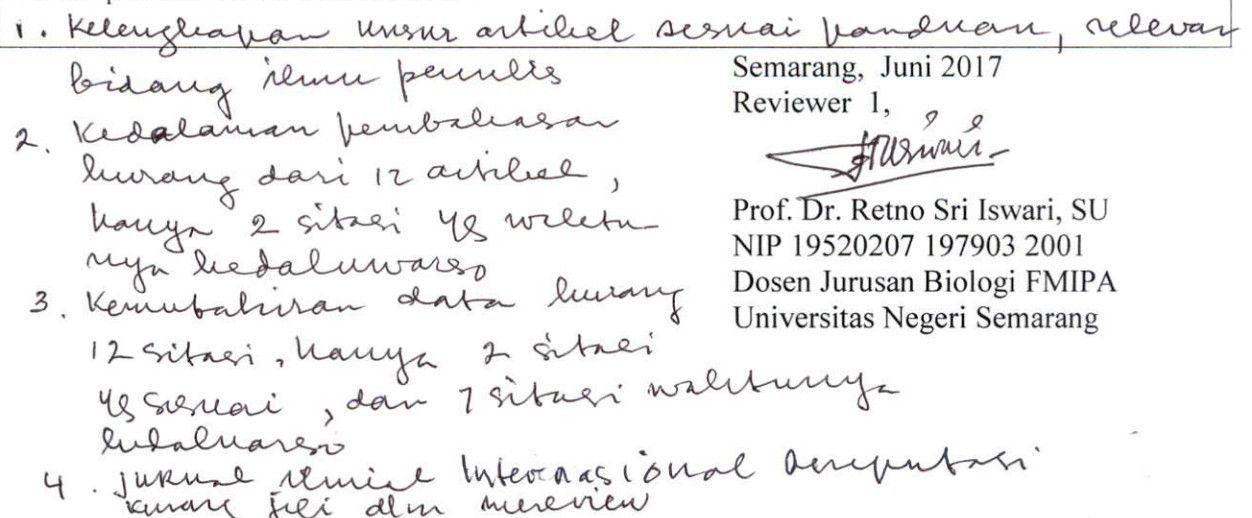 1. Kelengkapan unsur artikel sesuai panduan, relevan
bidang ilmu penulis
2. Kedalaman pembahasan
kurang dari 12 artikel,
hanya 2 sitasi yg waktu-
nya kedaluwarso
3. Kemutahiran data kurang
12 sitasi, hanya 2 sitasi
yg sesuai, dan 7 sitasi waktunya
kedaluarso
4. Jurnal ilmial Internasional bereputasi
kurang jeli dlm mereview
Semarang, Juni 2017
Reviewer 1,
Prof. Dr. Retno Sri Iswari, SU
NIP 19520207 197903 2001
Dosen Jurusan Biologi FMIPA
Universitas Negeri Semarang